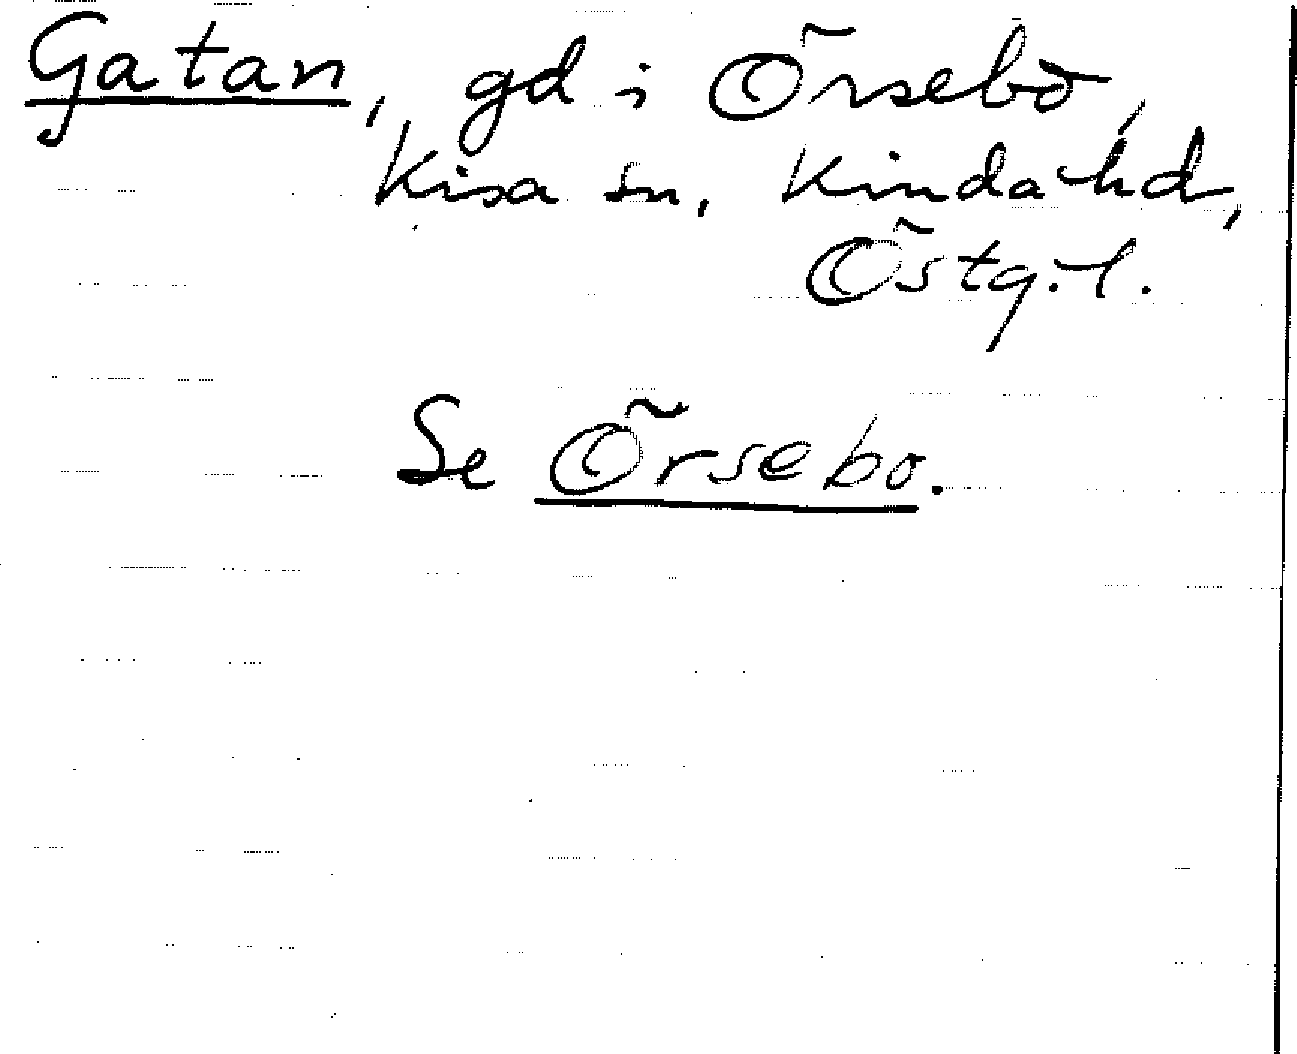 Gatan, gd i Örsebo,
Kisa sn, Kinda hd,
Östg. l.
Se Örsebo.